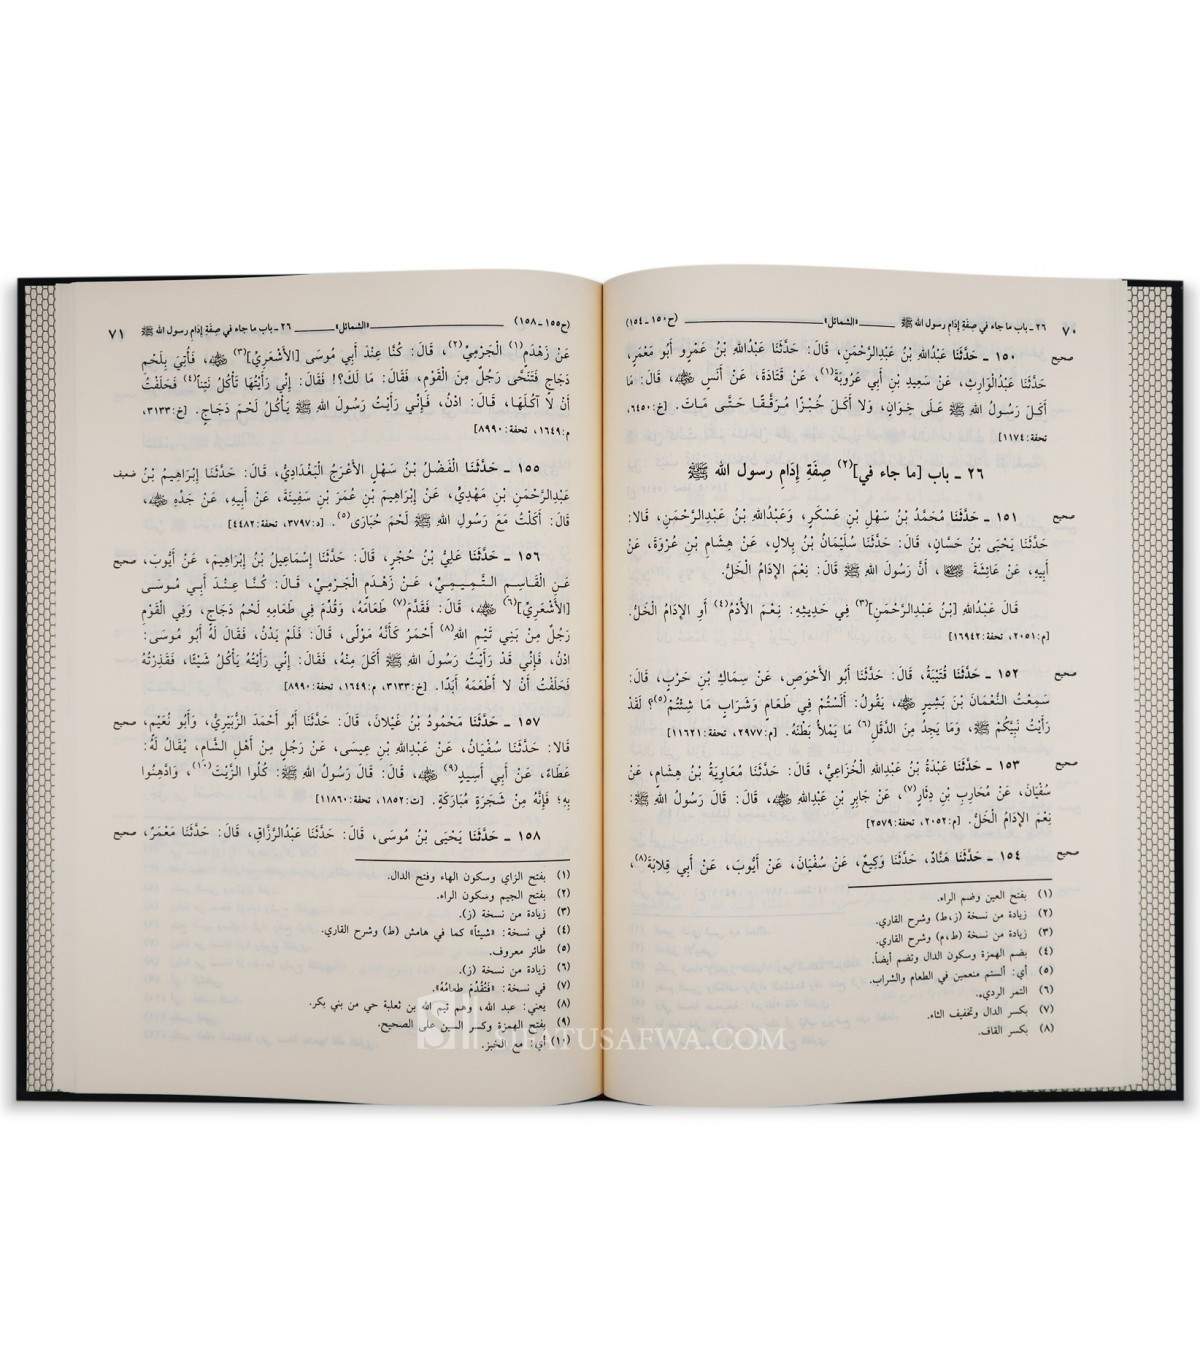 ٧٠ ٢٦ ـ باب ما جاء في صِفَةِ إدَامِ رسول الله ﷺ «الشمائل» (ح١٥٠ـ١٥٤)
صحيح ١٥٠ ـ حَدَّثَنَا عَبْدُاللهِ بْنُ عَبْدِالرَّحْمَنِ، قَالَ: حَدَّثَنَا عَبْدُاللهِ بْنُ عَمْرٍو أَبُو مَعْمَرٍ،
حَدَّثَنَا عَبْدُالْوَارِثِ، عَنْ سَعِيدِ بْنِ أَبِي عَرُوبَةَ(١)، عَنْ قَتَادَةَ، عَنْ أَنَسٍ ﷺ، قَالَ: مَا
أَكَلَ رَسُولُ اللهِ ﷺ عَلَى خِوَانٍ، وَلَا أَكَلَ خُبْزًا مُرَقَّقًا حَتَّى مَاتَ. [خ:٦٤٥٠،
تحفة:١١٧٤]
٢٦ ـ باب [ما جاء في](٢) صِفَةِ إدَامِ رسول الله ﷺ
صحيح ١٥١ ـ حَدَّثَنَا مُحَمَّدُ بْنُ سَهْلِ بْنِ عَسْكَرٍ، وَعَبْدُاللهِ بْنُ عَبْدِالرَّحْمَنِ، قَالَا:
حَدَّثَنَا يَحْيَى بْنُ حَسَّانَ، قَالَ: حَدَّثَنَا سُلَيْمَانُ بْنُ بِلَالٍ، عَنْ هِشَامِ بْنِ عُرْوَةَ، عَنْ
أَبِيهِ، عَنْ عَائِشَةَ ، أَنَّ رَسُولَ اللهِ ﷺ قَالَ: نِعْمَ الإِدَامُ الْخَلُّ.
قَالَ عَبْدُاللهِ [بْنُ عَبْدِالرَّحْمَنِ](٣) فِي حَدِيثِهِ: نِعْمَ الأُدْمُ(٤) أَوِ الإِدَامُ الْخَلُّ.
[م:٢٠٥١، تحفة:١٦٩٤٢]
صحيح ١٥٢ ـ حَدَّثَنَا قُتَيْبَةُ، قَالَ: حَدَّثَنَا أَبُو الأَحْوَصِ، عَنْ سِمَاكِ بْنِ حَرْبٍ، قَالَ:
سَمِعْتُ النُّعْمَانَ بْنَ بَشِيرٍ ، يَقُولُ: أَلَسْتُمْ فِي طَعَامٍ وَشَرَابٍ مَا شِئْتُمْ(٥)؟ لَقَدْ
رَأَيْتُ نَبِيَّكُمْ ﷺ، وَمَا يَجِدُ مِنَ الدَّقَلِ(٦) مَا يَمْلَأُ بَطْنَهُ. [م:٢٩٧٧، تحفة:١١٦٢١]
صحيح ١٥٣ ـ حَدَّثَنَا عَبْدَةُ بْنُ عَبْدِاللهِ الْخُزَاعِيُّ، قَالَ: حَدَّثَنَا مُعَاوِيَةُ بْنُ هِشَامٍ، عَنْ
سُفْيَانَ، عَنْ مُحَارِبِ بْنِ دِثَارٍ(٧)، عَنْ جَابِرِ بْنِ عَبْدِاللهِ ، قَالَ: قَالَ رَسُولُ اللهِ ﷺ:
نِعْمَ الإِدَامُ الْخَلُّ. [م:٢٠٥٢، تحفة:٢٥٧٩]
صحيح ١٥٤ ـ حَدَّثَنَا هَنَّادٌ، حَدَّثَنَا وَكِيعٌ، عَنْ سُفْيَانَ، عَنْ أَيُّوبَ، عَنْ أَبِي قِلابَةَ(٨)،
(١) بفتح العين وضم الراء.
(٢) زيادة من نسخة (ز،ط) وشرح القاري.
(٣) زيادة من نسخة (ط،م) وشرح القاري.
(٤) بضم الهمزة وسكون الدال وتضم أيضاً.
(٥) أي: ألستم منعمين في الطعام والشراب.
(٦) التمر الرديء.
(٧) بكسر الدال وتخفيف الثاء.
(٨) بكسر القاف.
(ح١٥٥ـ١٥٨) «الشمائل» ٢٦ ـ باب ما جاء في صِفَةِ إدَامِ رسول الله ﷺ ٧١
عَنْ زَهْدَمٍ(١) الْجَرْمِيِّ(٢)، قَالَ: كُنَّا عِنْدَ أَبِي مُوسَى [الأَشْعَرِيِّ](٣) ، فَأُتِيَ بِلَحْمِ
دَجَاجٍ فَتَنَحَّى رَجُلٌ مِنَ الْقَوْمِ، فَقَالَ: مَا لَكَ؟! فَقَالَ: إِنِّي رَأَيْتُهَا تَأْكُلُ نَتِناً(٤) فَحَلَفْتُ
أَنْ لَا آكُلَهَا، قَالَ: ادْنُ، فَإِنِّي رَأَيْتُ رَسُولَ اللهِ ﷺ يَأْكُلُ لَحْمَ دَجَاجٍ. [خ:٣١٣٣،
م:١٦٤٩، تحفة:٨٩٩٠]
١٥٥ ـ حَدَّثَنَا الْفَضْلُ بْنُ سَهْلٍ الأَعْرَجُ الْبَغْدَادِيُّ، قَالَ: حَدَّثَنَا إِبْرَاهِيمُ بْنُ ضعيف
عَبْدِالرَّحْمَنِ بْنِ مَهْدِيٍّ، عَنْ إِبْرَاهِيمَ بْنِ عُمَرَ بْنِ سَفِينَةَ، عَنْ أَبِيهِ، عَنْ جَدِّهِ ،
قَالَ: أَكَلْتُ مَعَ رَسُولِ اللهِ ﷺ لَحْمَ حُبَارَى(٥). [د:٣٧٩٧، تحفة:٤٤٨٢]
١٥٦ ـ حَدَّثَنَا عَلِيُّ بْنُ حُجْرٍ، قَالَ: حَدَّثَنَا إِسْمَاعِيلُ بْنُ إِبْرَاهِيمَ، عَنْ أَيُّوبَ، صحيح
عَنِ الْقَاسِمِ التَّمِيمِيِّ، عَنْ زَهْدَمٍ الْجَرْمِيِّ، قَالَ: كُنَّا عِنْدَ أَبِي مُوسَى
[الأَشْعَرِيِّ](٦) ، قَالَ: فَقَدَّمَ(٧) طَعَامَهُ، وَقُدِّمَ فِي طَعَامِهِ لَحْمُ دَجَاجٍ، وَفِي الْقَوْمِ
رَجُلٌ مِنْ بَنِي تَيْمِ اللهِ(٨) أَحْمَرُ كَأَنَّهُ مَوْلًى، قَالَ: فَلَمْ يَدْنُ، فَقَالَ لَهُ أَبُو مُوسَى:
ادْنُ، فَإِنِّي قَدْ رَأَيْتُ رَسُولَ اللهِ ﷺ أَكَلَ مِنْهُ، فَقَالَ: إِنِّي رَأَيْتُهُ يَأْكُلُ شَيْئًا، فَقَذِرْتُهُ
فَحَلَفْتُ أَنْ لَا أَطْعَمَهُ أَبَدًا. [خ:٣١٣٣، م:١٦٤٩، تحفة:٨٩٩٠]
١٥٧ ـ حَدَّثَنَا مَحْمُودُ بْنُ غَيْلَانَ، قَالَ: حَدَّثَنَا أَبُو أَحْمَدَ الزُّبَيْرِيُّ، وَأَبُو نُعَيْمٍ، صحيح
قَالَا: حَدَّثَنَا سُفْيَانُ، عَنْ عَبْدِاللهِ بْنِ عِيسَى، عَنْ رَجُلٍ مِنْ أَهْلِ الشَّامِ، يُقَالُ لَهُ:
عَطَاءٌ، عَنْ أَبِي أَسِيدٍ(٩) ، قَالَ: قَالَ رَسُولُ اللهِ ﷺ: كُلُوا الزَّيْتَ(١٠)، وَادَّهِنُوا
بِهِ؛ فَإِنَّهُ مِنْ شَجَرَةٍ مُبَارَكَةٍ. [ت:١٨٥٢، تحفة:١١٨٦٠]
١٥٨ ـ حَدَّثَنَا يَحْيَى بْنُ مُوسَى، قَالَ: حَدَّثَنَا عَبْدُالرَّزَّاقِ، قَالَ: حَدَّثَنَا مَعْمَرٌ، صحيح
(١) بفتح الزاي وسكون الهاء وفتح الدال.
(٢) بفتح الجيم وسكون الراء.
(٣) زيادة من نسخة (ز).
(٤) في نسخة: «شيئاً» كما في هامش (ط) وشرح القاري.
(٥) طائر معروف.
(٦) زيادة من نسخة (ز).
(٧) في نسخة: «فَتُقُدِّمَ طعامُهُ».
(٨) يعني: عبد الله، وهم تيم الله بن ثعلبة حي من بني بكر.
(٩) بفتح الهمزة وكسر السين على الصحيح.
(١٠) أي: مع الخبز.
SIFATUSAFWA.COM